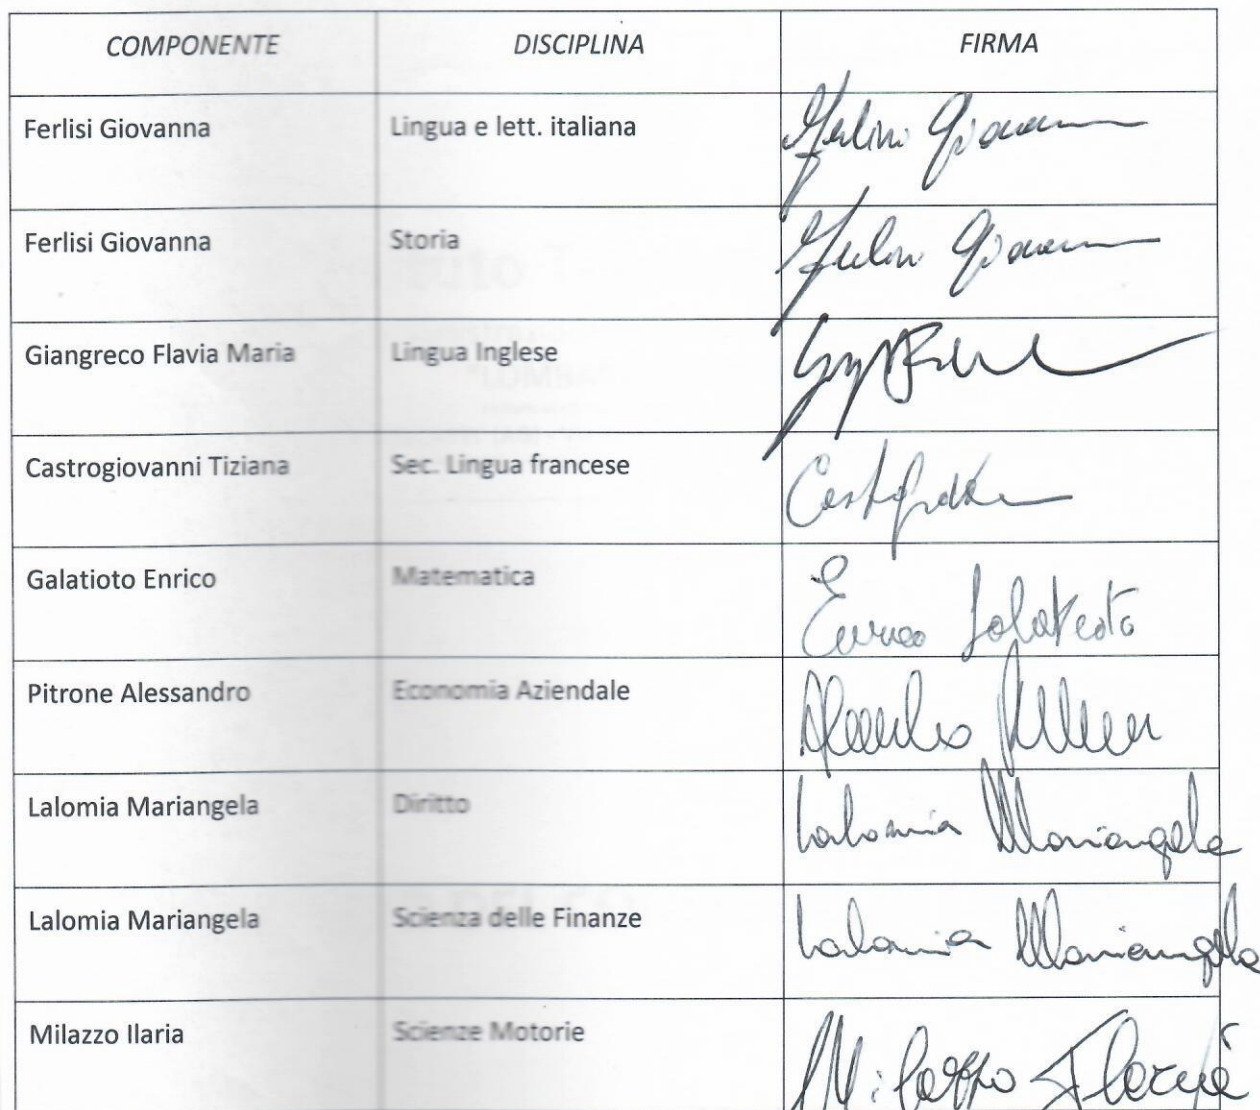 COMPONENTE DISCIPLINA FIRMA
Ferlisi Giovanna Lingua e lett. italiana Ferlisi Giovanna
Ferlisi Giovanna Storia Ferlisi Giovanna
Giangreco Flavia Maria Lingua Inglese
Castrogiovanni Tiziana Sec. Lingua francese
Galatioto Enrico Matematica Enrico Galatioto
Pitrone Alessandro Economia Aziendale Alessandro Pitrone
Lalomia Mariangela Diritto Lalomia Mariangela
Lalomia Mariangela Scienza delle Finanze Lalomia Mariangela
Milazzo Ilaria Scienze Motorie Milazzo Ilaria